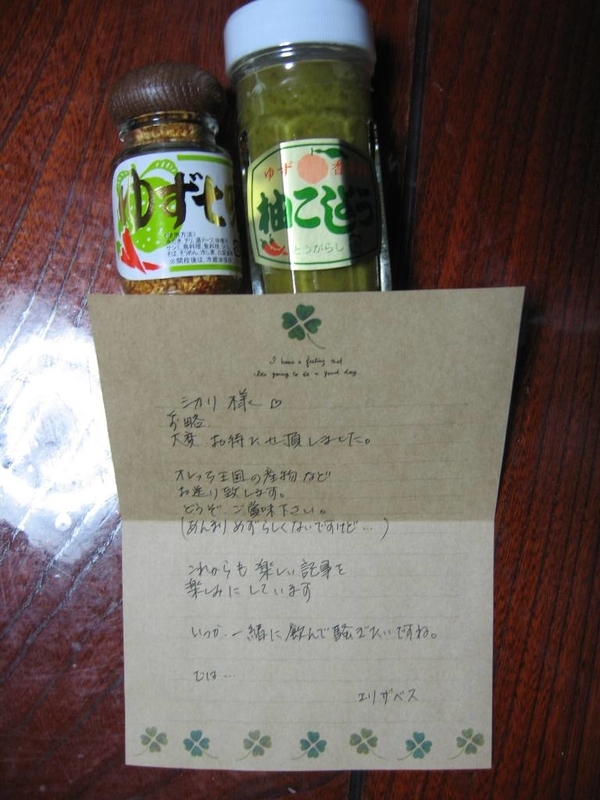 ゆず七味
ゆず
柚こしょう
とうがらし
※開栓後は、冷蔵
I have a feeling that
like going to be a good day
シカリ 様 ♡
前略
大変 お待たせ致しました。
オレっち王国の産物など
お送り致します。
どうぞ ご賞味下さい。
(あんまり めずらしくないですけど… )
これからも 楽しい記事を
楽しみに しています
いつか 一緒に飲んで騒ぎたいですね。
では…
エリザベス